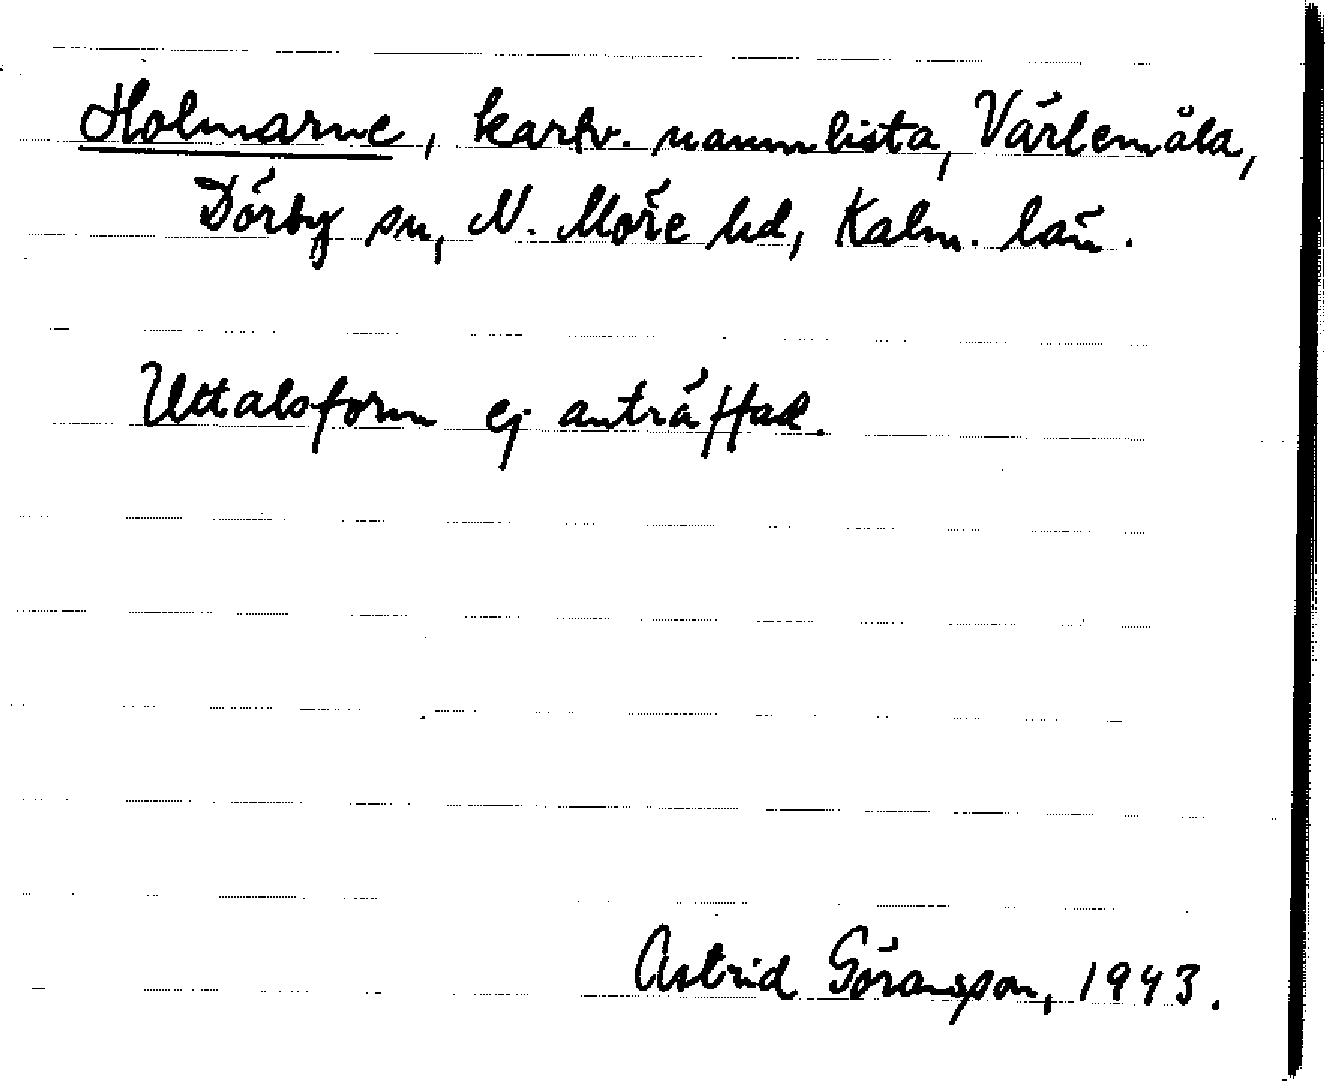 Holmarne, kartv. namnlista, Värlemåla,
Dörby sn, N. Möre hd, Kalm. län.
Uttalsform ej anträffad.
Astrid Göransson, 1943.